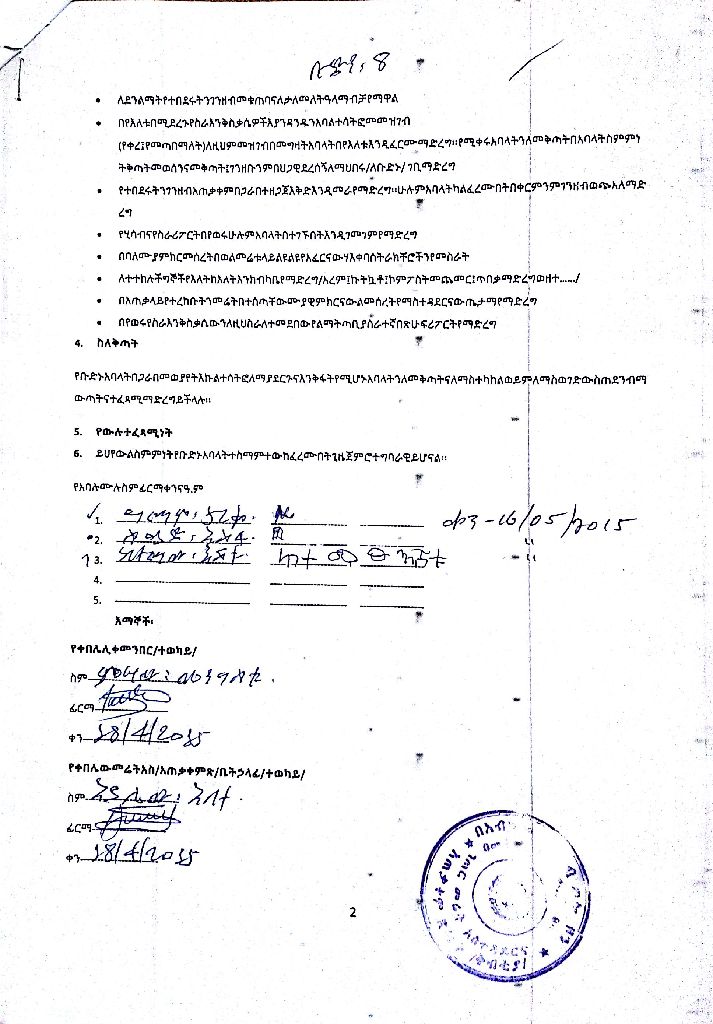 ለደንልማትየተበደሩትንገንዘብመቁጠባናለታለመለትዓላማብቻየማዋል
በየእለቱበሚደረጉየስራእንቅስቃሴዎችእያንዳንዱንአባልተሳትፎመመዝገብ
(የቀረ፤የመጣበማለት)ለዚህምመዝገብበማግዛትአባላትበየእለቱእንዲፈርሙማድረግ።የሚቀሩአባላትንለመቅጣትበአባላትስምምነ
ትቅጣትመወሰንናመቅጣት፤ገንዘቡንምበህጋዊደረሰኝለማህበሩ/ለቡድኑ/ ገቢማድረግ
የተበደሩትንገንዘብአጠቃቀምበጋራበተዘጋጀእቅድእንዲመራየማድረግ።ሁሉምአባላትካልፈረሙበትበቀርምንምገንዘብወጭአለማድ
ረግ
የሂሳብናየስራሪፖርትበየወሩሁሉምአባላትበተገኙበትእንዲገመገምየማድረግ
በባለሙያምክርመሰረትበወልመሬቱላይልዩልዩየአፈርናውሃእቀባስትራክቸሮችንየመስራት
ለተተከሉችግኞችየእለትከእለትእንክብካቤየማድረግ/አረም፤ኩትኳቶ፤ኮምፖስትመጨመር፤ጥበቃማድረግወዘተ....../
በአጠቃላይየተረከቡትንመሬትበተሰጣቸውሙያዊምክርናውልመሰረትየማስተዳደርናውጤታማየማድረግ
በየወሩየስራእንቅስቃሴውንለዚህስራለተመደበውየልማትጣቢያሰራተኛበጽሁፍሪፖርትየማድረግ
4. ስለቅጣት
የቡድኑአባላትበጋራበመወያየትእኩልተሳትፎለማያደርጉናእንቅፋትየሚሆኑአባላትንለመቅጣትናለማስተካከልወይምለማስወገድውስጠደንብማ
ውጣትናተፈጻሚማድረግይችላሉ።
5. የውሉተፈጻሚነት
6. ይህየውልስምምነትየቡድኑአባላትተስማምተውከፈረሙበትጊዜጀምሮተግባራዊይሆናል።
የአባሉሙሉስምፊርማቀንናዓ.ም
1. ቀን-16/05/2015
2.
3.
4.
5.
እማኞች፡
የቀበሌሊቀመንበር/ተወካይ/
ስም
ፊርማ
ቀን 28/4/2015
የቀበሌውመሬትአስ/አጠቃቀምጽ/ቤትኃላፊ/ተወካይ/
ስም
ፊርማ
ቀን 28/4/2015
2